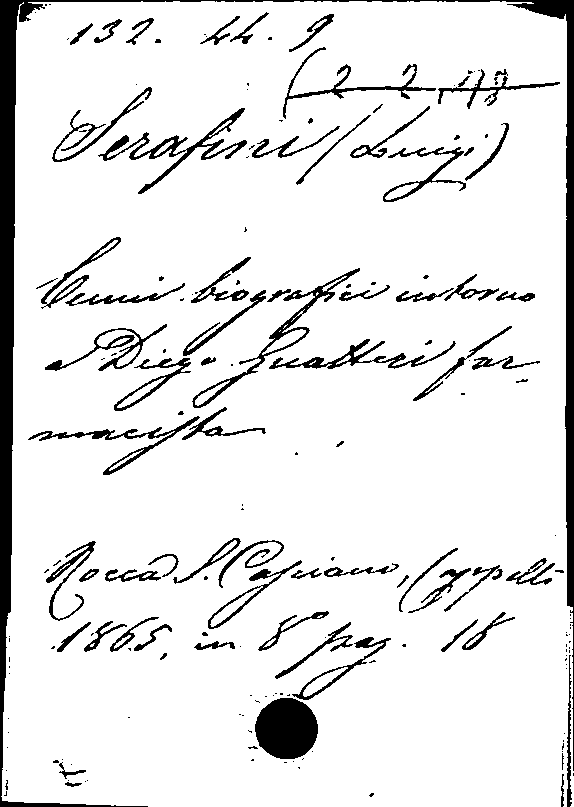 132. 44. 9
(2 2, 78
Serafini (Luigi)
Cenni biografici intorno
a Diego Gualtieri far-
macista
Rocca S. Casciano, Cappelli
1865, in 8° pag. 18